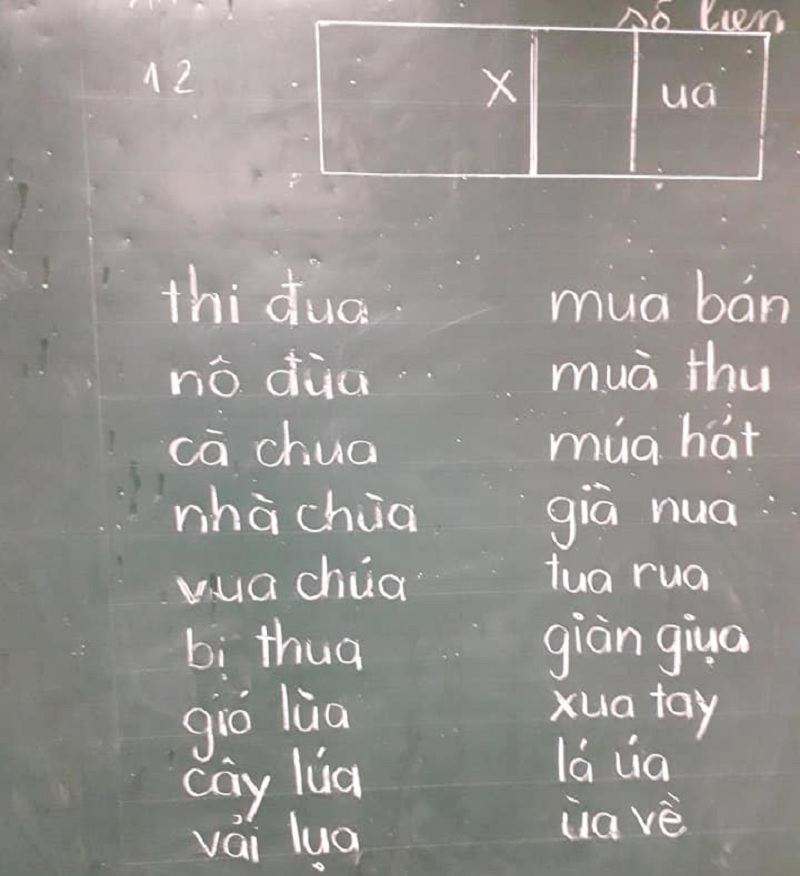 12
x
ua
thi đua
nô đùa
cà chua
nhà chùa
vua chúa
bị thua
gió lùa
cây lúa
vải lụa
mua bán
mùa thu
múa hát
già nua
tua rua
giàn giụa
xua tay
lá úa
ùa về